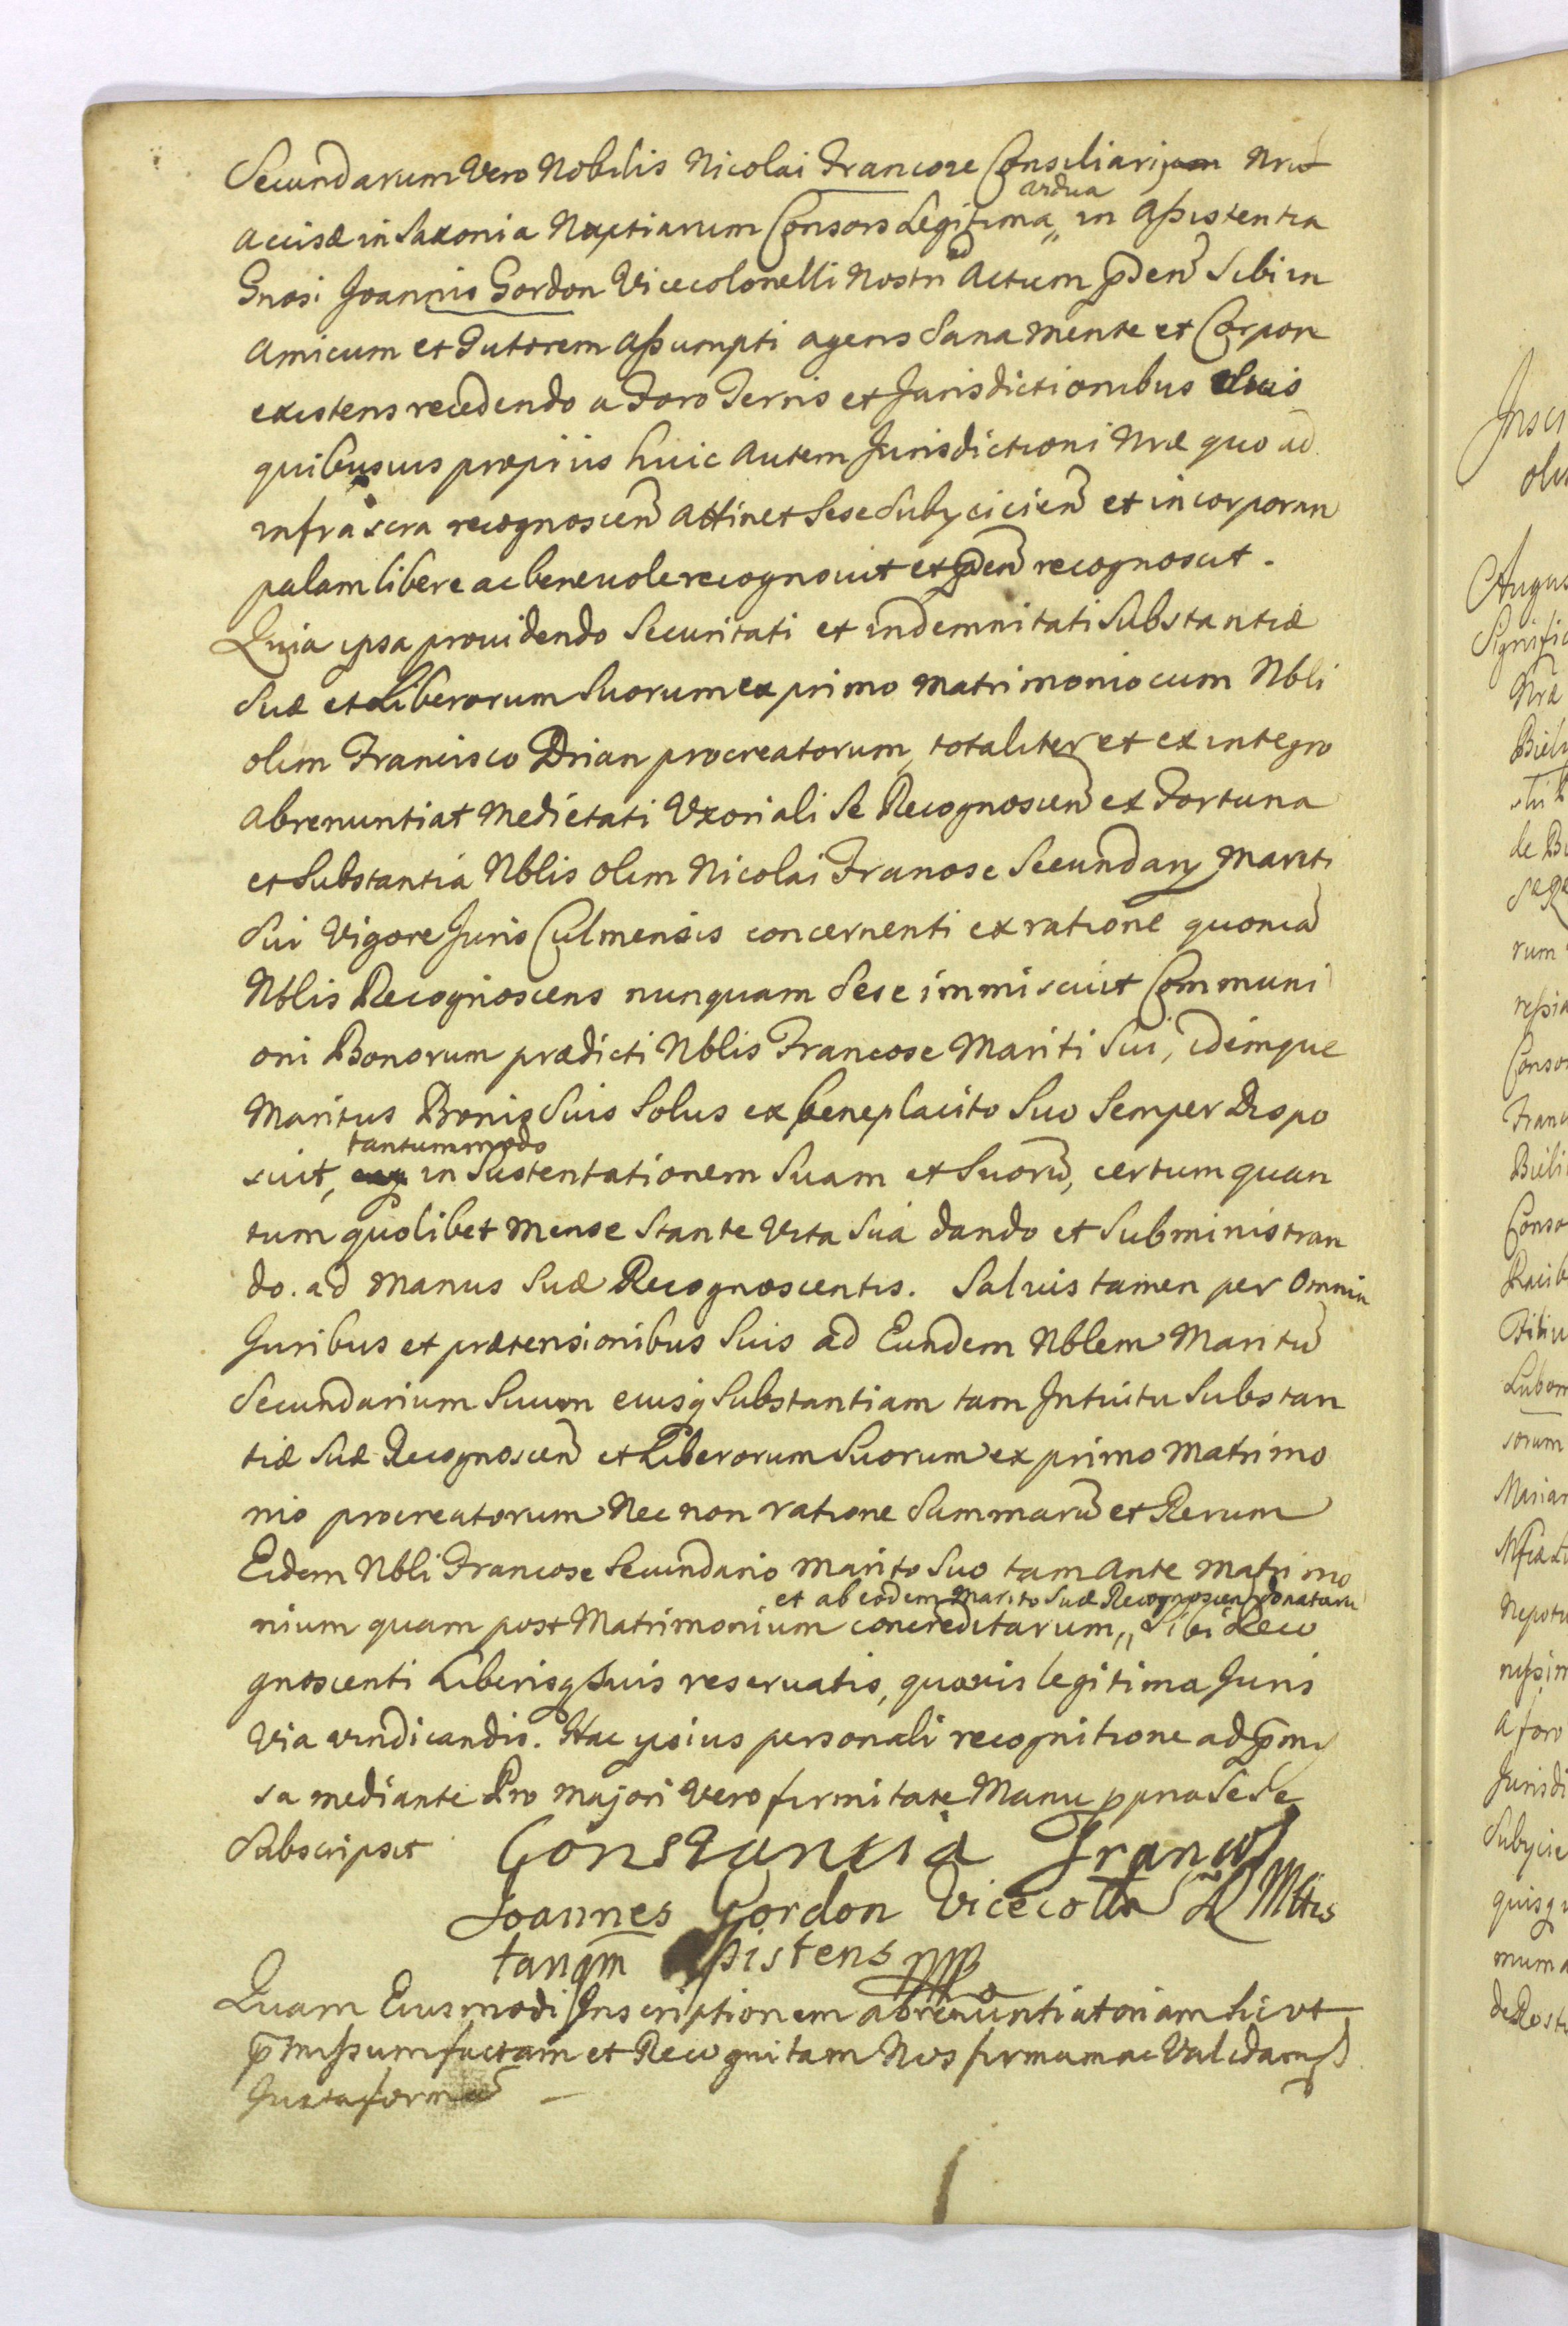 Secundarum Vero Nobilis Nicolai Francose Consiliarij Nrii
ardua
accisæ in Saxonia Nuptiarum Consors Legitima,, in assistentia
Gnosi Joannis Gordon Vicecolonelli Nostri ad Actum pñdem̃ Sibi in
Amicum et Tutorem assumpti agens Sana mente et Corpore
existens recedendo a Foro Terris et Jurisdictionibus Suis
quibusuis proprijs huic autem Jurisdictioni Nræ quo ad
infra scra recognoscen̄ attinet Sese Subyicien̄ et incorporan
palam libere ac beneuole recognouit et pñdem̃ recognoscit.
Quia ipsa prouidendo Securitati et indemnitati Substantiæ
Suæ et Liberorum Suorum ex primo matrimonio cum Nbli
olim Francisco Drian procreatorum, totaliter et ex integro
abrenuntiat Medietati Uxoriali Se Recognoscen̄ ex Fortuna
et Substantia Nblis olim Nicolai Francose Secundarij Mariti
Sui Vigore Juris Culmensis concernenti ex ratione quoniã
Nblis Recognoscens nunquam Sese immiscuit Communi
oni Bonorum prædicti Nblis Francose Mariti Sui, idemque
Maritus Bonis Suis Solus ex beneplacito Suo Semper Dispo
tantummodo
suit, in Sustentationem Suam et Suorũ, certum quan
tum quolibet Mense Stante Vita Sua dando et Subministran
do. ad Manus Suæ Recognoscentis. Saluis tamen per Omnia
Juribus et prætensionibus Suis ad Eundem Nblem Maritũ
Secundarium Suum eiusq Substantiam tam Intuitu Substan
tiæ Suæ Recognoscen̄ et Liberorum Suorum ex primo Matrimo
nio procreatorum Nec non ratione Summarũ et Rerum
Eidem Nbli Francose Secundario Marito Suo tam Ante Matrimo
et ab eodem Marito Suæ Recognoscen̄ donatarum
nium quam post Matrimonium concreditarum,, Sibi Reco
gnoscenti Liberisq Suis reseruatis, quauis legitima Juris
Via vindicandis. Hac ipsius personali recognitione ad p̃mis
sa mediante Pro majori Vero firmitate Manu ppria Se Se
Subscripsit Constancia Francos
Joannes Gordon Vicecolla S R Mttis
tanqm Assistens mpp
Quam Eiusmodi Inscriptionem abrenuntiatoriam sic vt
p̃missum factam et Recognitam Nos firmam ac Validam p
Juxta formã –
Jnscr
Augus
Signific
Nræ
Biel
de B
rum
Conso
Franc
Bieli
Conso
Lubom
sorum
Nepotu
a foro
Jurisdi
Subyicie
quisq